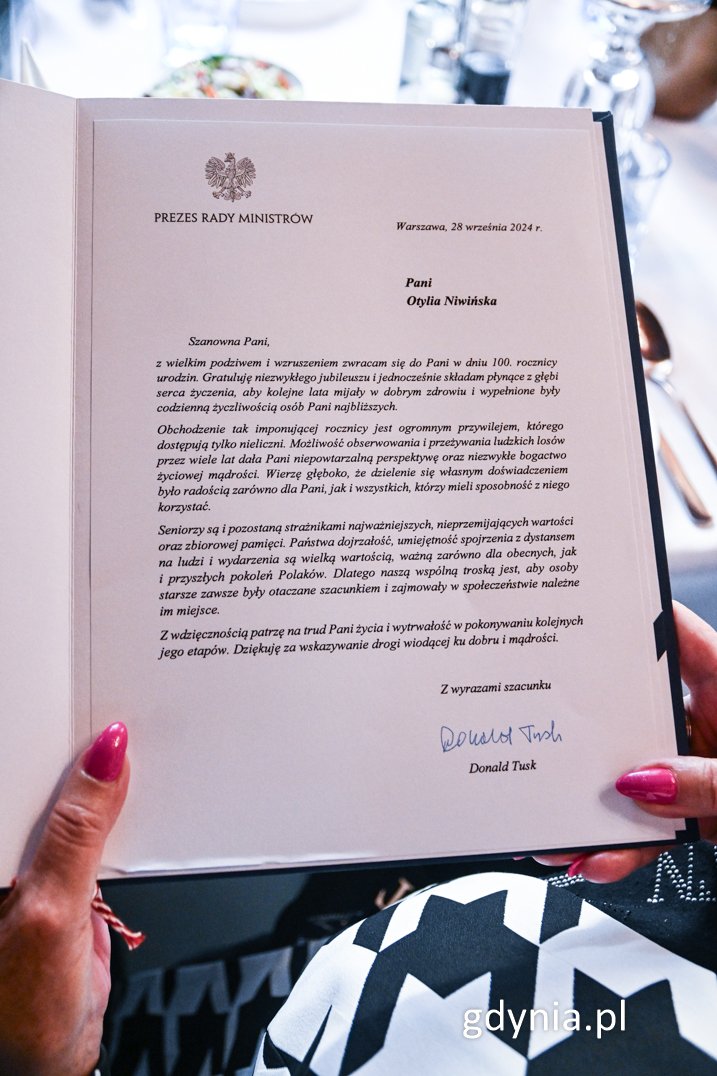 PREZES RADY MINISTRÓW
Warszawa, 28 września 2024 r.
Pani
Otylia Niwińska
Szanowna Pani,
z wielkim podziwem i wzruszeniem zwracam się do Pani w dniu 100. rocznicy
urodzin. Gratuluję niezwykłego jubileuszu i jednocześnie składam płynące z głębi
serca życzenia, aby kolejne lata mijały w dobrym zdrowiu i wypełnione były
codzienną życzliwością osób Pani najbliższych.
Obchodzenie tak imponującej rocznicy jest ogromnym przywilejem, którego
dostępują tylko nieliczni. Możliwość obserwowania i przeżywania ludzkich losów
przez wiele lat dała Pani niepowtarzalną perspektywę oraz niezwykłe bogactwo
życiowej mądrości. Wierzę głęboko, że dzielenie się własnym doświadczeniem
było radością zarówno dla Pani, jak i wszystkich, którzy mieli sposobność z niego
korzystać.
Seniorzy są i pozostaną strażnikami najważniejszych, nieprzemijających wartości
oraz zbiorowej pamięci. Państwa dojrzałość, umiejętność spojrzenia z dystansem
na ludzi i wydarzenia są wielką wartością, ważną zarówno dla obecnych, jak
i przyszłych pokoleń Polaków. Dlatego naszą wspólną troską jest, aby osoby
starsze zawsze były otaczane szacunkiem i zajmowały w społeczeństwie należne
im miejsce.
Z wdzięcznością patrzę na trud Pani życia i wytrwałość w pokonywaniu kolejnych
jego etapów. Dziękuję za wskazywanie drogi wiodącej ku dobru i mądrości.
Z wyrazami szacunku
Donald Tusk
Donald Tusk
gdynia.pl